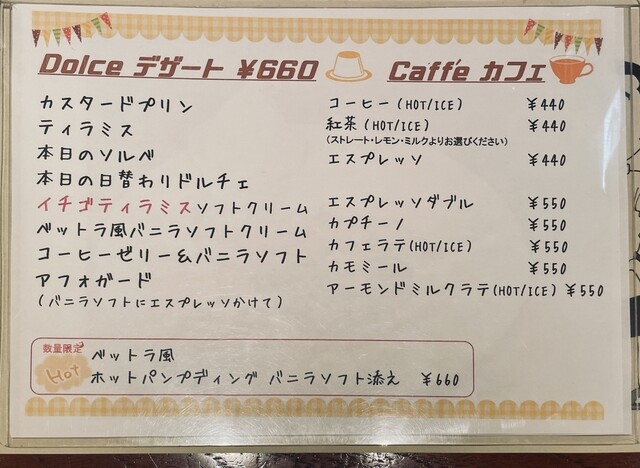 Dolce デザート ¥660
カスタードプリン
ティラミス
本日のソルベ
本日の日替わりドルチェ
イチゴティラミスソフトクリーム
ベットラ風バニラソフトクリーム
コーヒーゼリー&バニラソフト
アフォガード
(バニラソフトにエスプレッソかけて)
Caffe カフェ
コーヒー(HOT/ICE) ¥440
紅茶(HOT/ICE) ¥440
(ストレート・レモン・ミルクよりお選びください)
エスプレッソ ¥440
エスプレッソダブル ¥550
カプチーノ ¥550
カフェラテ(HOT/ICE) ¥550
カモミール ¥550
アーモンドミルクラテ(HOT/ICE) ¥550
数量限定
Hot
ベットラ風
ホットパンプディング バニラソフト添え ¥660